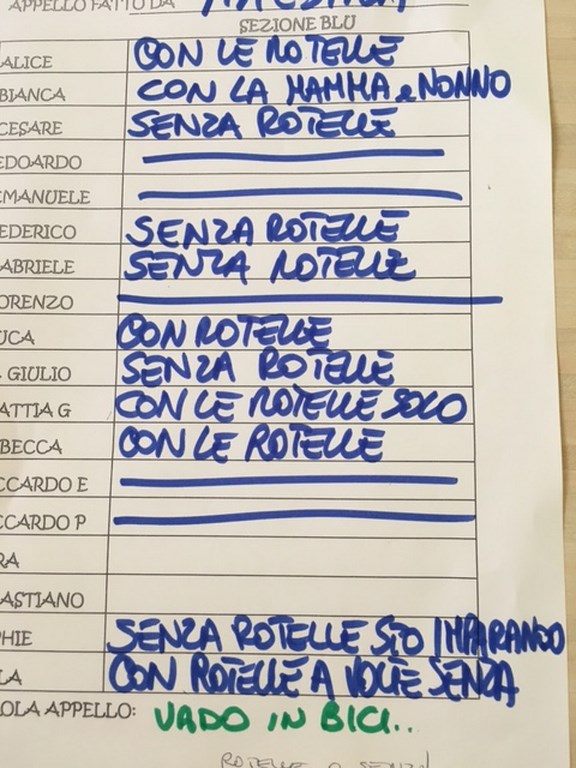 APPELLO FATTO DA
SEZIONE BLU
ALICE CON LE ROTELLE
BIANCA CON LA MAMMA e NONNO
CESARE SENZA ROTELLE
EDOARDO
EMANUELE
EDERICO SENZA ROTELLE
ABRIELE SENZA ROTELLE
ORENZO
UCA CON ROTELLE
GIULIO SENZA ROTELLE
ATTIA G CON LE ROTELLE SOLO
BECCA CON LE ROTELLE
CCARDO E
CCARDO P
RA
ASTIANO
PHIE SENZA ROTELLE STO IMPARANDO
LA CON ROTELLE A VOLTE SENZA
OLA APPELLO: VADO IN BICI..
ROTELLE O SENZA